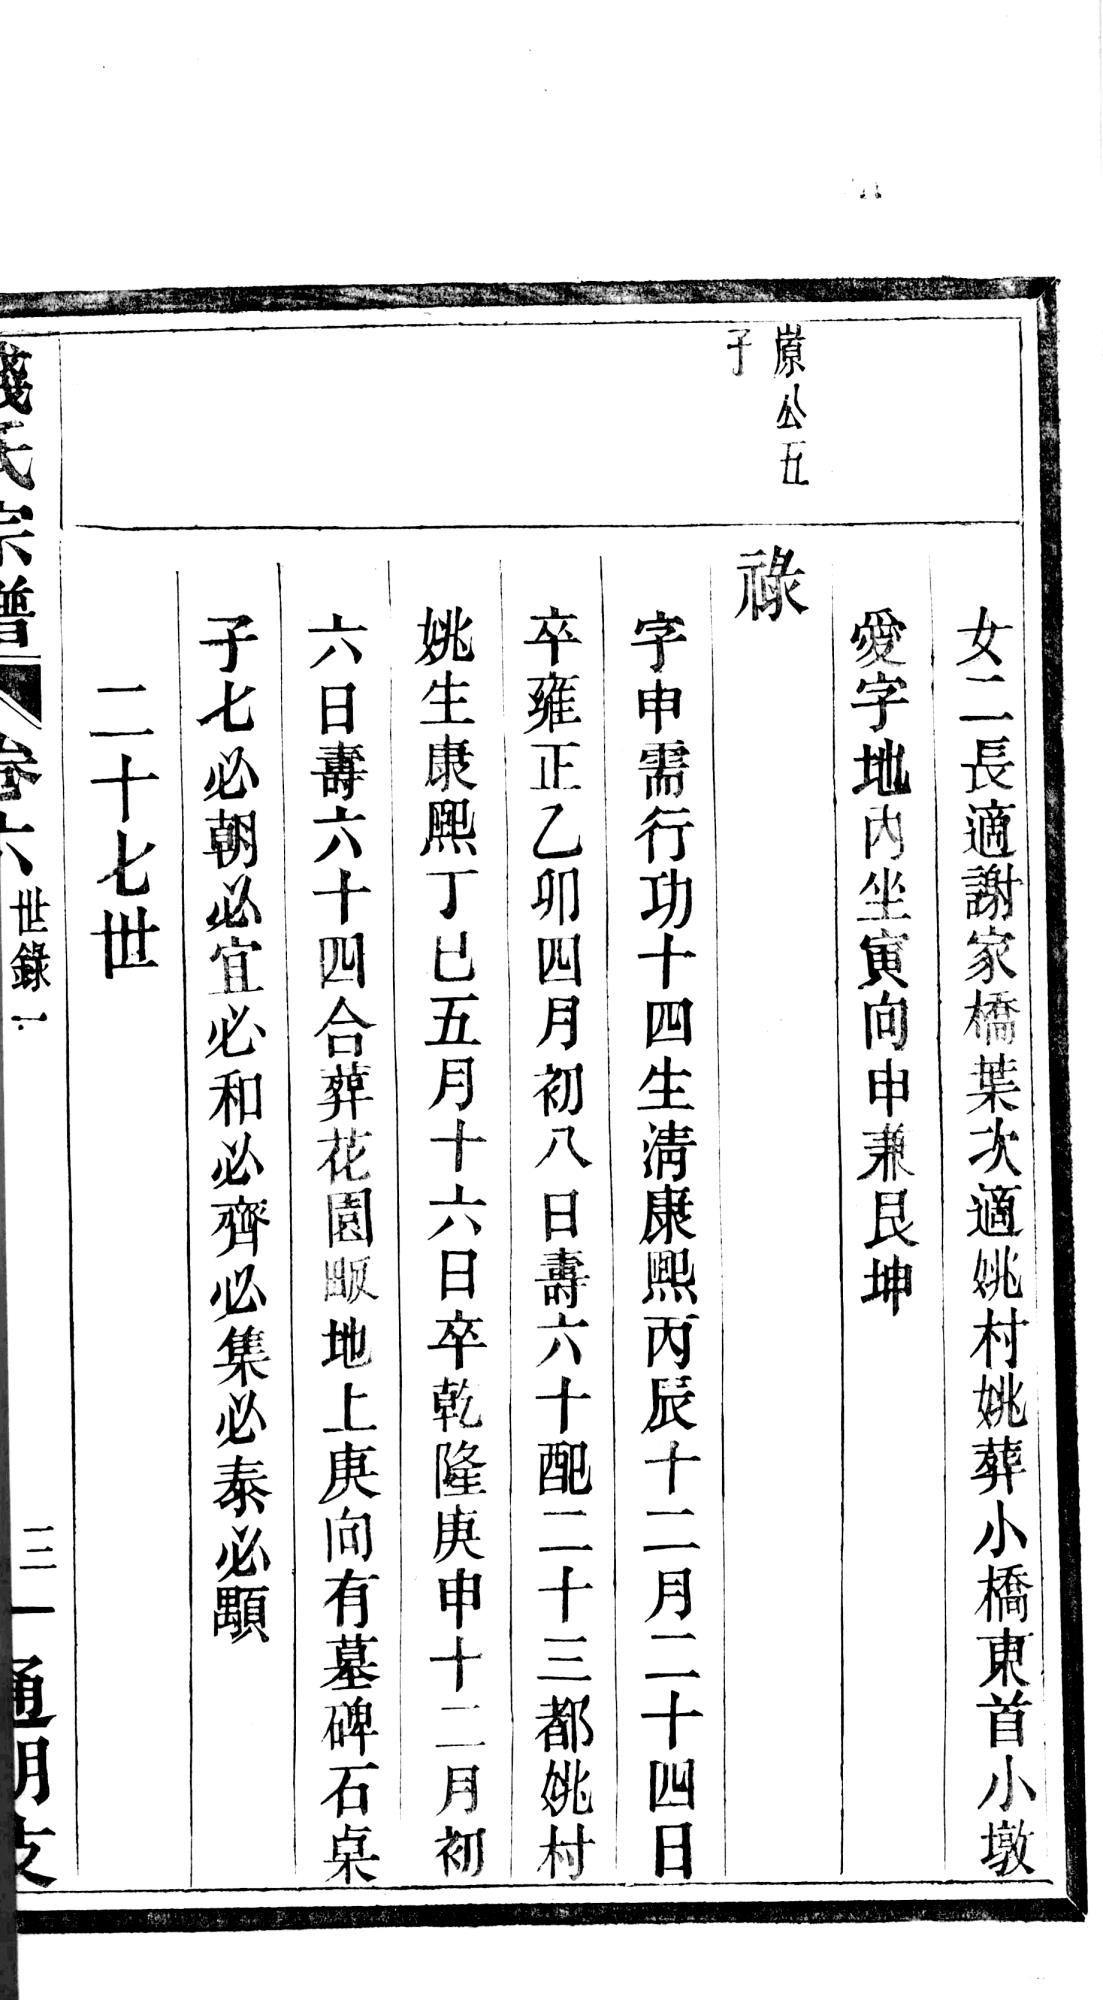 女二長適謝家橋葉次適姚村姚葬小橋東首小墩
愛字地內坐寅向申兼艮坤
公五
子
祿
字申需行功十四生淸康熙丙辰十二月二十四日
卒雍正乙卯四月初八日壽六十配二十三都姚村
姚生康熙丁巳五月十六日卒乾隆庚申十二月初
六日壽六十四合葬花園畈地上庚向有墓碑石桌
子七必朝必宜必和必齊必集必泰必顯
二十七世
氏宗譜
卷六
世錄一
三
通明支